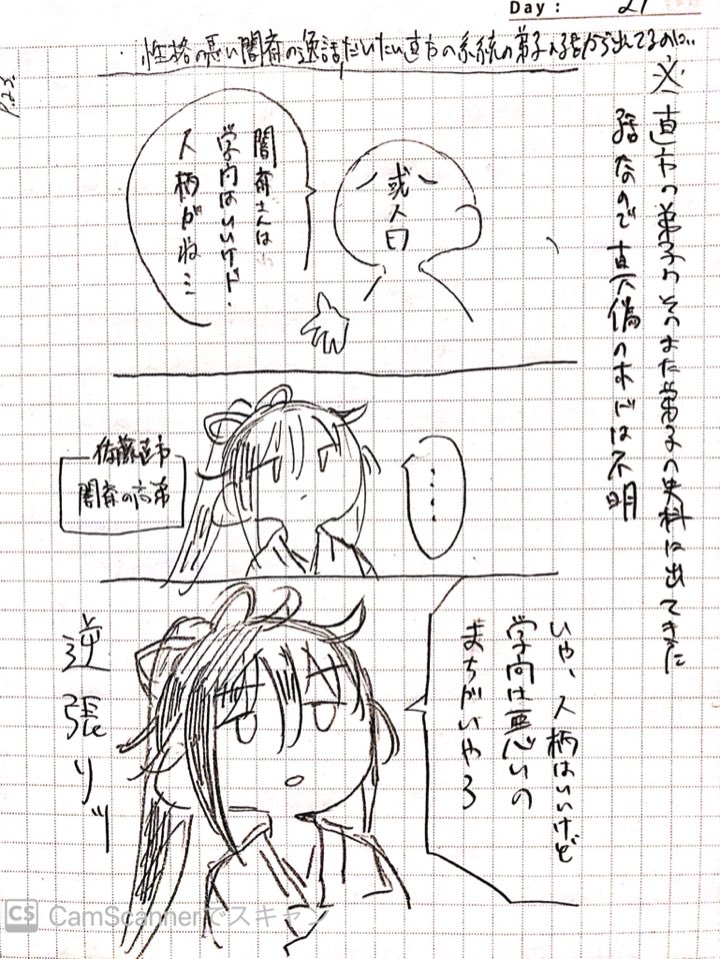 Day: 21
P.23
・性格の悪い闇斎の逸話だいたい直方の系統の弟子経由から出てるのに..
※直方の弟子のそのまた弟子の史料に出てきた
話なので真偽のホドは不明
或人曰
闇斎さんは
学問はいいけド、
人柄がね…
……
佐藤直方
闇斎の高弟
いや、人柄はいいけど
学問は悪いの
まちがいやろ
逆張りッ
CS CamScannerでスキャン